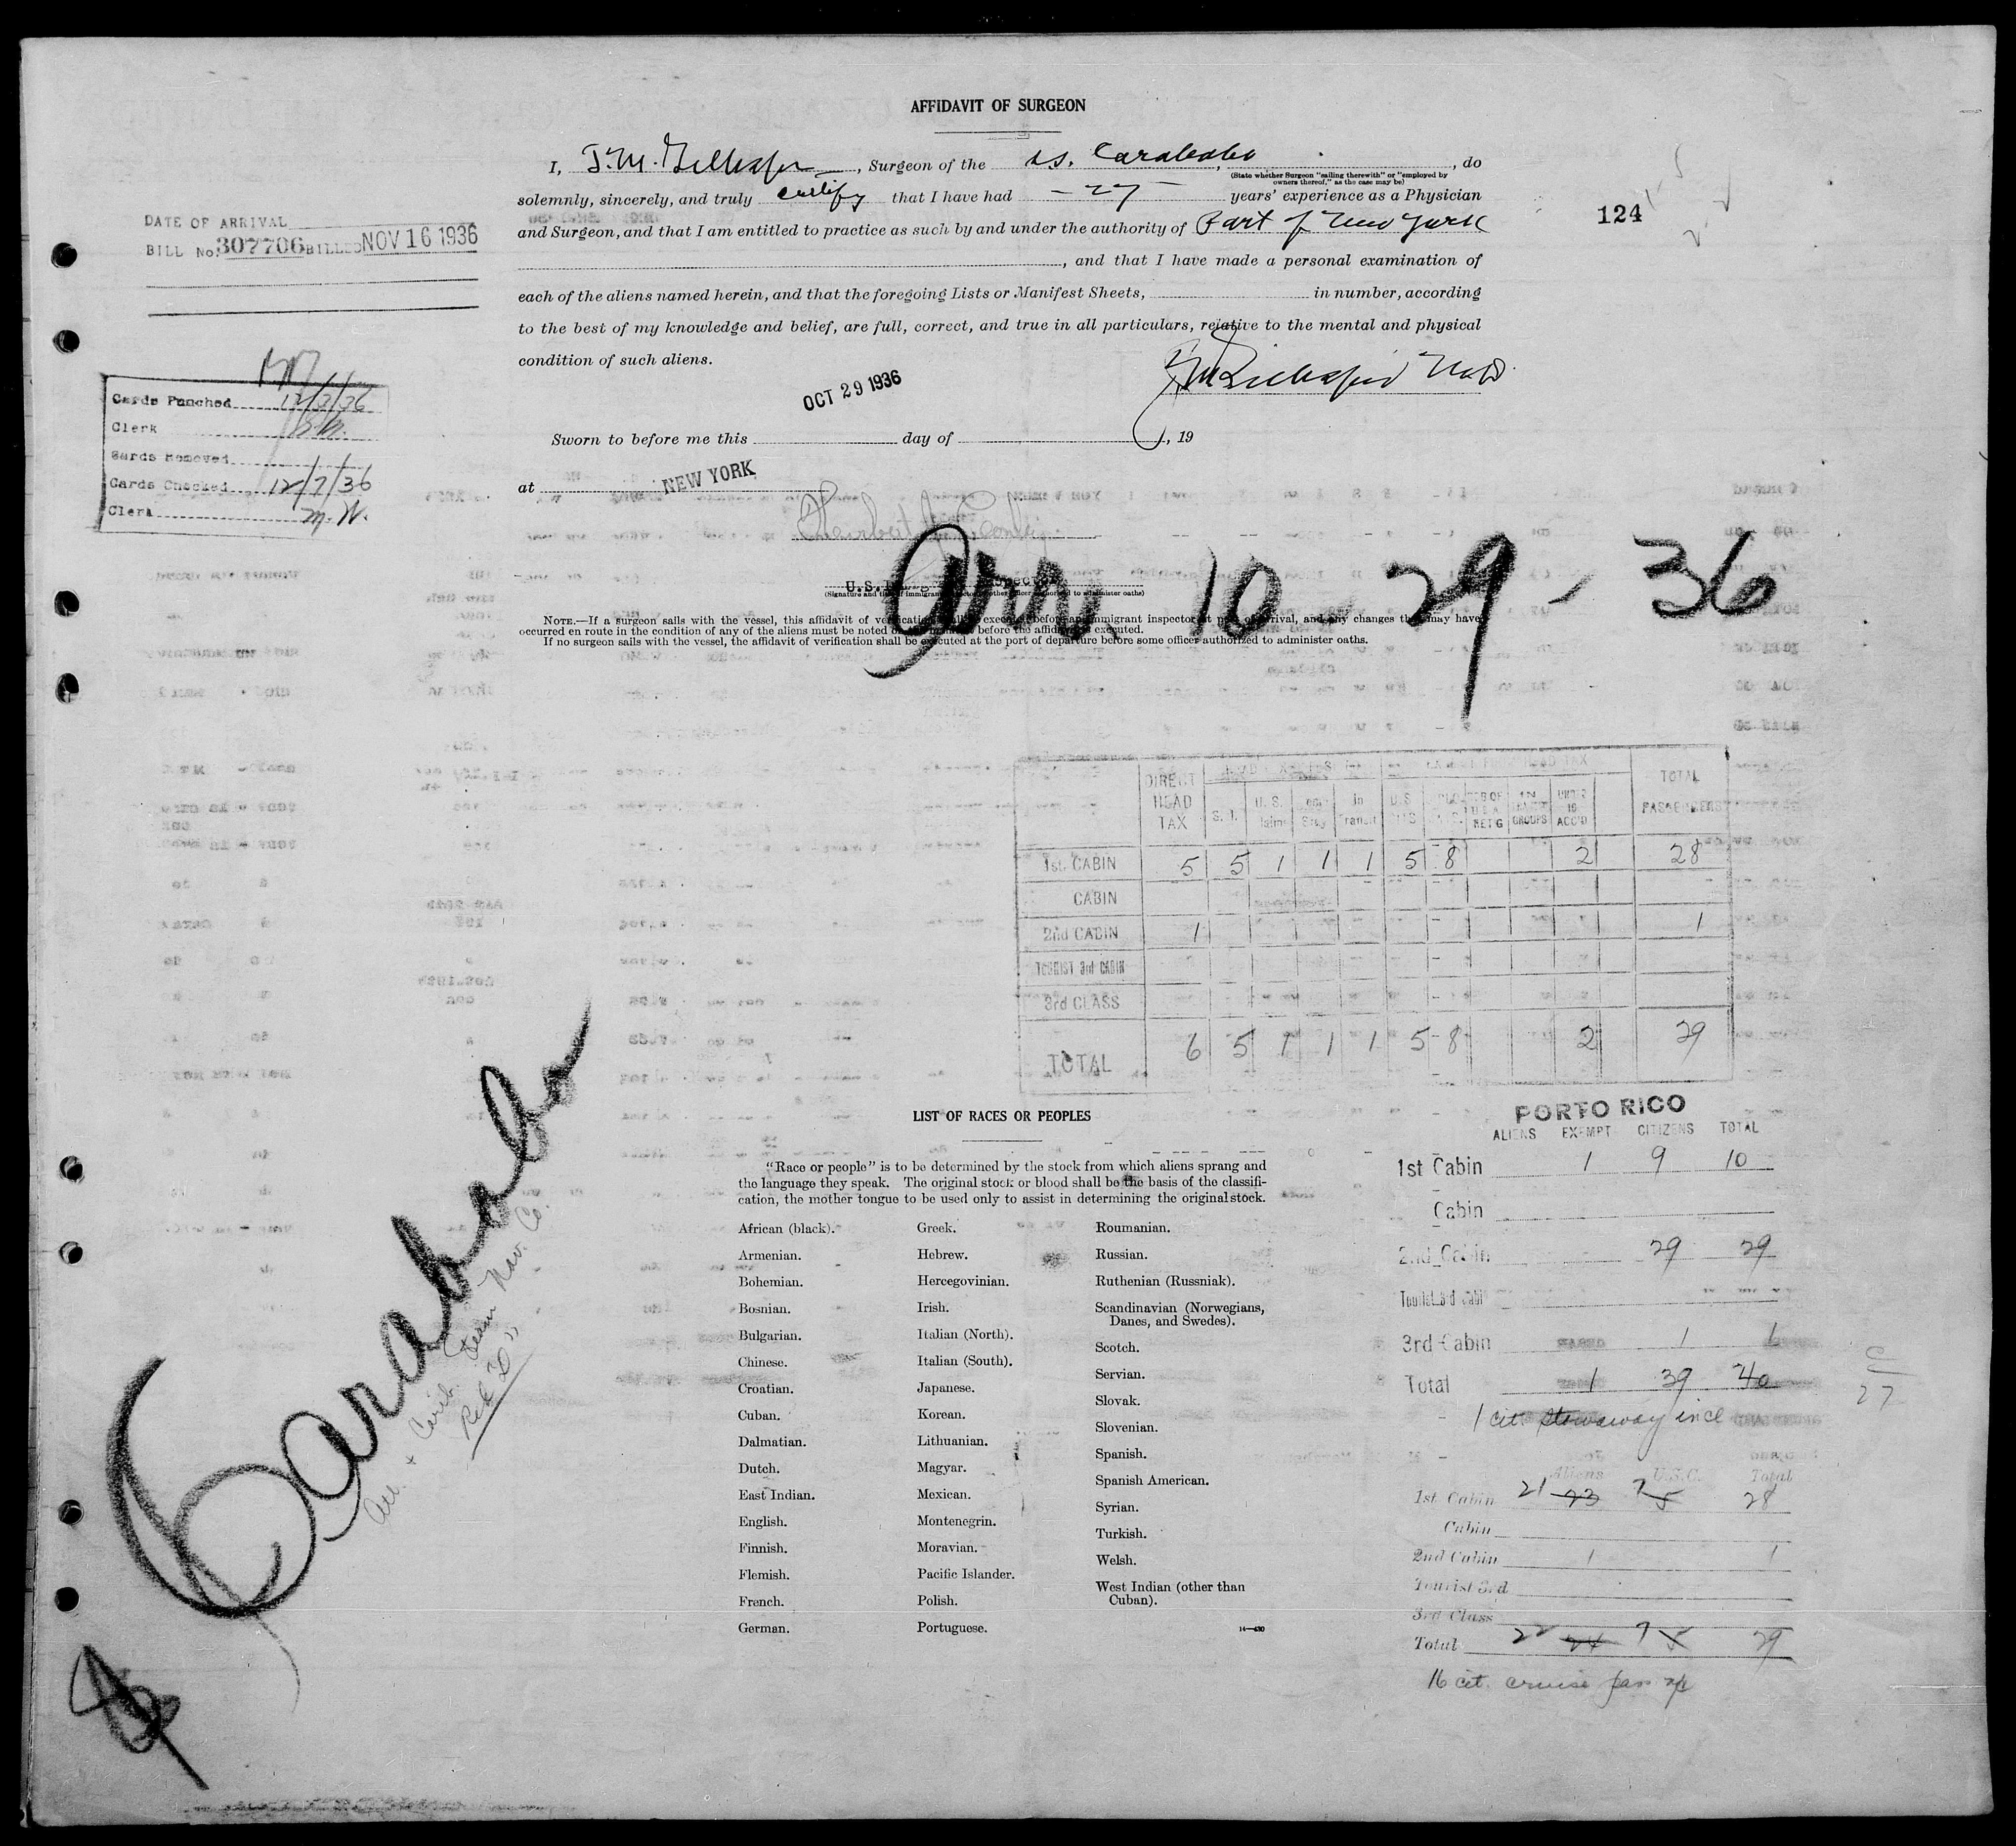 AFFIDAVIT OF SURGEON
I, J. M. , Surgeon of the ss. Carabobo , , do
(State whether Surgeon "sailing therewith" or "employed by
owners thereof," as the case may be)
solemnly, sincerely, and truly certify that I have had - 27 - years' experience as a Physician
and Surgeon, and that I am entitled to practice as such by and under the authority of Port of New York
, and that I have made a personal examination of
each of the aliens named herein, and that the foregoing Lists or Manifest Sheets, in number, according
to the best of my knowledge and belief, are full, correct, and true in all particulars, relative to the mental and physical
condition of such aliens.
124
DATE OF ARRIVAL
BILL No. 307706 BILLED NOV 16 1936
Cards Punched 12/3/36
Clerk
Cards Removed
Cards Checked 12/7/36
Clerk M. W.
OCT 29 1936
Sworn to before me this day of , 19
at NEW YORK
Arr. 10 - 29 - 36
NOTE.—If a surgeon sails with the vessel, this affidavit of verification shall be executed before an immigrant inspector at port of arrival, and any changes that may have
occurred en route in the condition of any of the aliens must be noted before the affidavit is executed.
If no surgeon sails with the vessel, the affidavit of verification shall be executed at the port of departure before some officer authorized to administer oaths.
DIRECT HEAD TAX S.I. U.S. In Transit U.S. UNDER 16 ACC'D TOTAL PASSENGERS
1st. CABIN 5 5 1 1 1 5 8 2 28
CABIN
2nd CABIN 1 1
TOURIST 3rd CABIN
3rd CLASS
TOTAL 6 5 1 1 1 5 8 2 29
LIST OF RACES OR PEOPLES
"Race or people" is to be determined by the stock from which aliens sprang and
the language they speak. The original stock or blood shall be the basis of the classifi-
cation, the mother tongue to be used only to assist in determining the original stock.
African (black).
Armenian.
Bohemian.
Bosnian.
Bulgarian.
Chinese.
Croatian.
Cuban.
Dalmatian.
Dutch.
East Indian.
English.
Finnish.
Flemish.
French.
German.
Greek.
Hebrew.
Hercegovinian.
Irish.
Italian (North).
Italian (South).
Japanese.
Korean.
Lithuanian.
Magyar.
Mexican.
Montenegrin.
Moravian.
Pacific Islander.
Polish.
Portuguese.
Roumanian.
Russian.
Ruthenian (Russniak).
Scandinavian (Norwegians,
Danes, and Swedes).
Scotch.
Servian.
Slovak.
Slovenian.
Spanish.
Spanish American.
Syrian.
Turkish.
Welsh.
West Indian (other than
Cuban).
14—430
PORTO RICO
ALIENS EXEMPT CITIZENS TOTAL
1st Cabin 1 9 10
Cabin
2nd Cabin 29 29
Tourist 3rd Cabin
3rd Cabin 1 1
Total 1 39 40
1 cit. stowaway incl
Aliens U.S.C. Total
1st Cabin 21 23 7 5 28
Cabin
2nd Cabin 1 1
Tourist 3rd
3rd Class
Total 22 24 7 5 29
16 cit. cruise pass
C
27
Carabobo
Atl. + Carib. Steam Nav. Co.